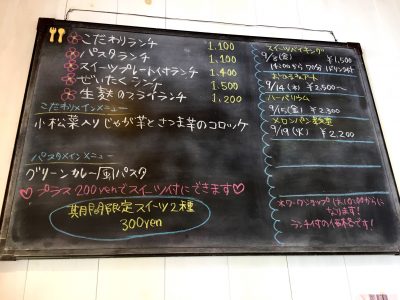 こだわりランチ 1,100
パスタランチ 1,100
スイーツプレート付ランチ 1,400
ぜいたくランチ 1,500
生麩のフライランチ 1,200
こだわりメインメニュー
小松菜入りじゃが芋とさつま芋のコロッケ
パスタメインメニュー
グリーンカレー風パスタ
♡プラス200yenでスイーツ付にできます♡
期間限定スイーツ2種
300yen
スイーツバイキング
9/8(金) ¥1,500
14:00から70分 1ドリンク付
9/14(木) ¥2,500〜
ハーバリウム
9/15(金) ¥2,300
メロンパン教室
9/19(火) ¥2,200
*ワークショップは10:00からに
なります!
ランチ付の価格です!